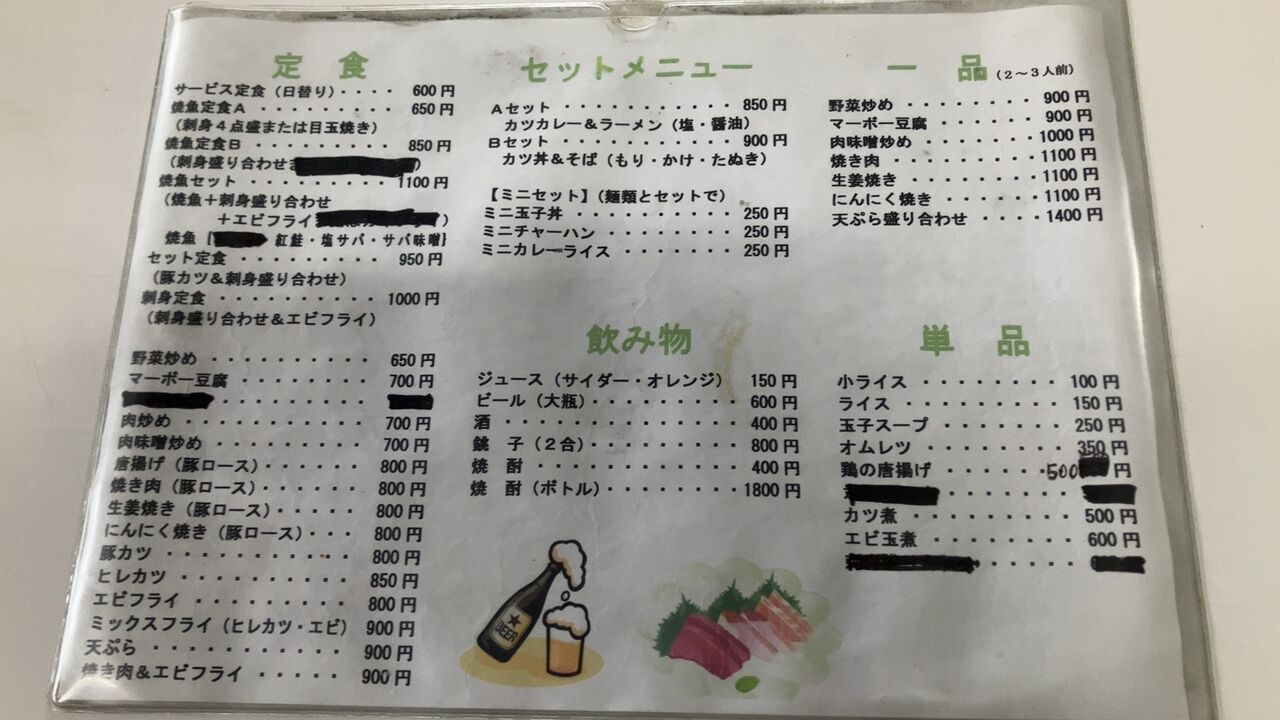 定食
サービス定食（日替り）・・・・ 600円
焼魚定食A・・・・・・・・・ 650円
（刺身4点盛または目玉焼き）
焼魚定食B・・・・・・・・・ 850円
（刺身盛り合わせ
焼魚セット・・・・・・・・・1100円
（焼魚＋刺身盛り合わせ
＋エビフライ
焼魚［ 紅鮭・塩サバ・サバ味噌］
セット定食・・・・・・・・・ 950円
（豚カツ＆刺身盛り合わせ）
刺身定食・・・・・・・・・・1000円
（刺身盛り合わせ＆エビフライ）
野菜炒め・・・・・・・・・・ 650円
マーボー豆腐・・・・・・・・ 700円
肉炒め・・・・・・・・・・・ 700円
肉味噌炒め・・・・・・・・・ 700円
唐揚げ（豚ロース）・・・・・ 800円
焼き肉（豚ロース）・・・・・ 800円
生姜焼き（豚ロース）・・・・ 800円
にんにく焼き（豚ロース）・・・ 800円
豚カツ・・・・・・・・・・・ 800円
ヒレカツ・・・・・・・・・・ 850円
エビフライ・・・・・・・・・ 800円
ミックスフライ（ヒレカツ・エビ） 900円
天ぷら・・・・・・・・・・・ 900円
焼き肉＆エビフライ・・・・・ 900円
セットメニュー
Aセット・・・・・・・・・・・850円
カツカレー＆ラーメン（塩・醤油）
Bセット・・・・・・・・・・・900円
カツ丼＆そば（もり・かけ・たぬき）
【ミニセット】（麺類とセットで）
ミニ玉子丼・・・・・・・・・・250円
ミニチャーハン・・・・・・・・250円
ミニカレーライス・・・・・・・250円
一品（2～3人前）
野菜炒め・・・・・・・・ 900円
マーボー豆腐・・・・・・ 900円
肉味噌炒め・・・・・・・1000円
焼き肉・・・・・・・・・1100円
生姜焼き・・・・・・・・1100円
にんにく焼き・・・・・・1100円
天ぷら盛り合わせ・・・・1400円
飲み物
ジュース（サイダー・オレンジ） 150円
ビール（大瓶）・・・・・・・・600円
酒・・・・・・・・・・・・・・400円
銚子（2合）・・・・・・・・・800円
焼酎・・・・・・・・・・・・・400円
焼酎（ボトル）・・・・・・・・1800円
単品
小ライス・・・・・・・・100円
ライス・・・・・・・・・150円
玉子スープ・・・・・・・250円
オムレツ・・・・・・・・350円
鶏の唐揚げ・・・・・・500 円
カツ煮・・・・・・・・・500円
エビ玉煮・・・・・・・・600円
BEER